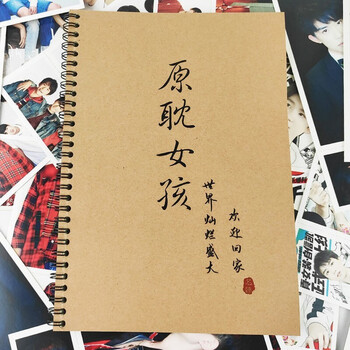 原耽女孩
世界灿烂盛大
欢迎回家